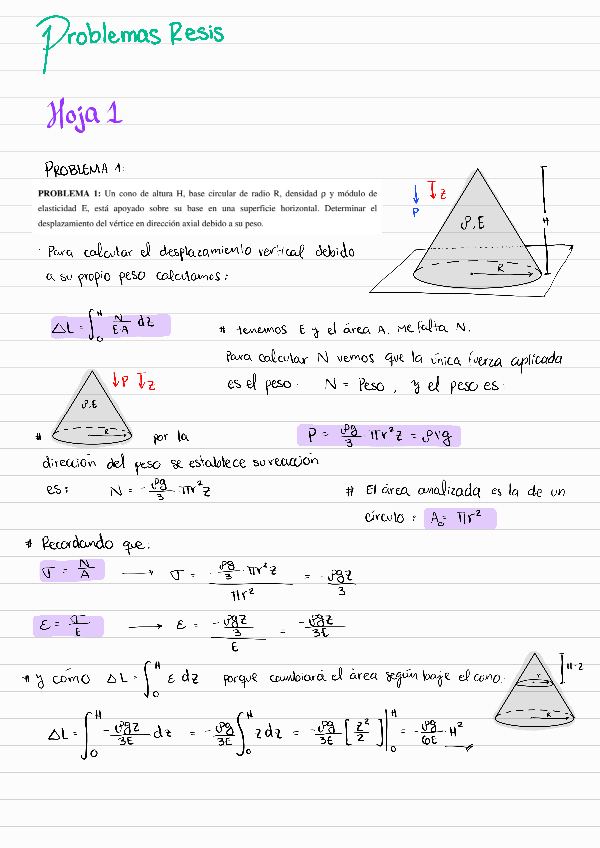 Problemas Resis
Hoja 1
PROBLEMA 1:
PROBLEMA 1: Un cono de altura H, base circular de radio R, densidad ρ y módulo de
elasticidad E, está apoyado sobre su base en una superficie horizontal. Determinar el
desplazamiento del vértice en dirección axial debido a su peso.
P z
ρ, E
H
R
· Para calcular el desplazamiento vertical debido
a su propio peso calculamos:
ΔL = ∫₀ᴴ N/EA dz
# tenemos E y el área A. Me falta N.
Para calcular N vemos que la única fuerza aplicada
es el peso. N = Peso, y el peso es.
P z
ρ, E
R
# por la
P = ρg/3 πr²z = ρVg
dirección del peso se establece su reacción
es: N = -ρg/3 · πr²z
# El área analizada es la de un
círculo: A₀ = πr²
# Recordando que:
σ = N/A → σ = (-ρg/3 · πr²z)/(πr²) = -ρgz/3
ε = σ/E → ε = (-ρgz/3)/E = -ρgz/3E
# y cómo ΔL = ∫₀ᴴ ε dz porque cambiará el área según baje el cono.
r
H-z
R
ΔL = ∫₀ᴴ -ρgz/3E dz = -ρg/3E ∫₀ᴴ z dz = -ρg/3E [z²/2]|₀ᴴ = -ρg/6E · H²